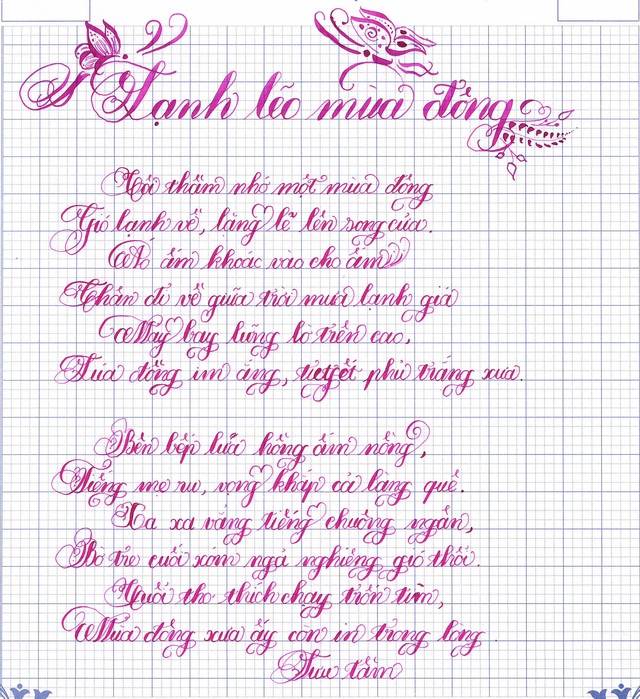 Lạnh lẽo mùa đông
Tôi thầm nhớ một mùa đông
Gió lạnh về, lặng lẽ lên song cửa.
Áo ấm khoác vào cho ấm
Chân đi về giữa trời mưa lạnh giá
Mây bay lững lờ trên cao,
Túa đông im ắng, tuyết phủ trắng xưa.
Bên bếp lửa hồng ấm nồng,
Tiếng mẹ ru, vọng khắp cả làng quê.
Xa xa vẳng tiếng chuông ngân,
Bờ tre cuối xóm ngả nghiêng gió thổi.
Tuổi thơ thích chạy trốn tìm,
Mùa đông xưa ấy còn in trong lòng
Sưu tầm